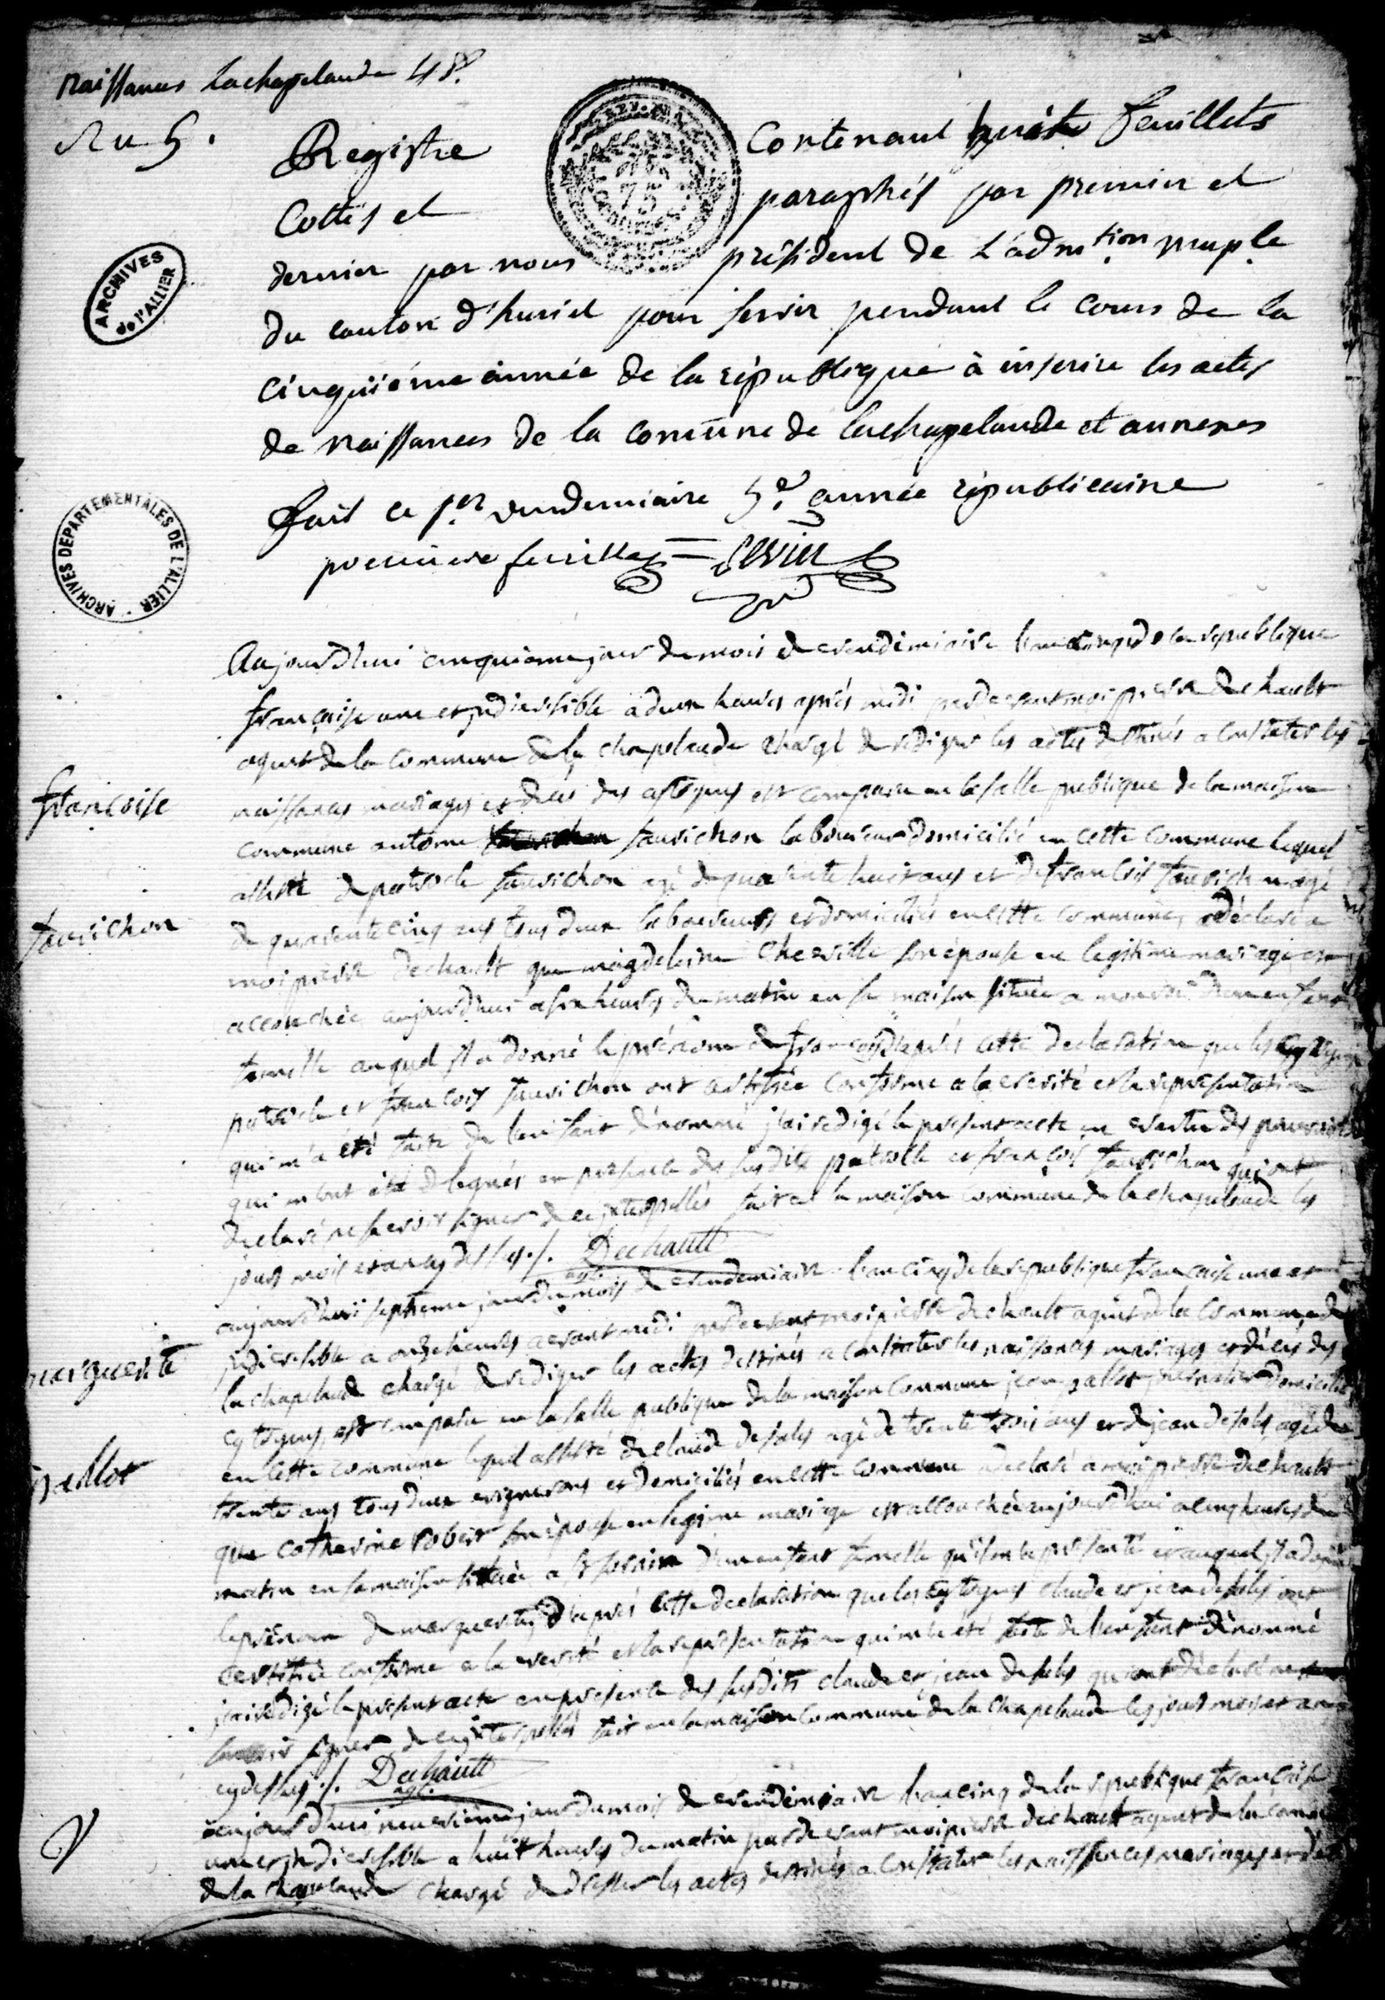 Naissances Lachapelaude 48.
An 5.
Registre Contenant huit feuillets
Cottés et paraphés par premier et
dernier par nous président de L'adm.tion mup.le
du canton d'huriel pour servir pendant le cours de la
cinquiéme année de la république à inscrire les actes
de naissances de la comune de lachapelaude et annexes
fait ce 1.er vendemiaire 5.e année républicaine
premiere feuille
ARCHIVES
de l'ALLIER
75
ARCHIVES DEPARTEMENTALES DE L'ALLIER
aujourd'hui cinquieme jour du mois de vendemiaire l'an cinq de la republique
françoise une et indivisible a deux heures aprés midi pardevant moi pierre dechault
agent de la commune de la chapelaude chargé de rediger les actes destinés a constater les
naissances mariages et decés des citoyens est comparu en la salle publique de la maison
commune antoine fauvichon laboureur domicilié en cette commune lequel
assisté de patrocle fauvichon agé de quarante huit ans et de françois fauvichon agé
de quarante cinq ans tous deux laboureurs et domiciliés en cette commune, a déclaré a
moi pierre dechault que magdeleine son épouse en legitime mariage est
accouchée aujourd'hui a six heures du matin en sa maison située a d'un enfant
femelle auquel il a donné le prénom de françoise d'aprés cette declaration que les cytoyens
patrocle et françois fauvichon ont certifiée conforme a la verité et la representation
qui m'a été faite de l'enfant dénommé j'ai redigé le present acte en vertu des pouvoirs
qui m'ont été delegués en presence des susdits patrocle et françois fauvichon qui ont
declaré ne savoir signer de ce interpellés fait en la maison commune de la chapelaude les
jour mois et an cy dessus ./. Dechault
agt.
françoise
fauvichon
aujourd'hui septieme jour du mois de vendemiaire l'an cinq de la republique françoise une et
indivisible a onze heures avant midi pardevant moi pierre dechault agent de la commune de
la chapelaude chargé de rediger les actes destinés a constater les naissances mariages et décés des
cytoyens, est comparu en la salle publique de la maison commune jean gallot domicilié
en cette commune lequel assisté de claude desales agé de trente trois ans et de jean desales agé de
trente ans tous deux vignerons et domiciliés en cette commune a declaré a moi pierre dechault
que catherine robert son épouse en legitime mariage est accouchée aujourd'hui a cinq heures du
matin en sa maison située a d'un enfant femelle qu'il m'a presenté et auquel il a donné
le prénom de marguerite, d'aprés cette declaration que les cytoyens claude et jean desales ont
certifiée conforme a la verité et la representation qui m'a été faite de l'enfant dénommé
j'ai redigé le present acte en presence des susdits claude et jean desales qui ont déclaré ne
savoir signer de ce interpellés fait en la maison commune de la chapelaude les jour mois et an
cy dessus ./. Dechault
agt.
marguerite
gallot
aujourd'hui neuvieme jour du mois de vendemiaire l'an cinq de la republique françoise
une et indivisible a huit heures du matin pardevant moi pierre dechault agent de la commune
de la chapelaude chargé de dresser les actes destinés a constater les naissances mariages et décés